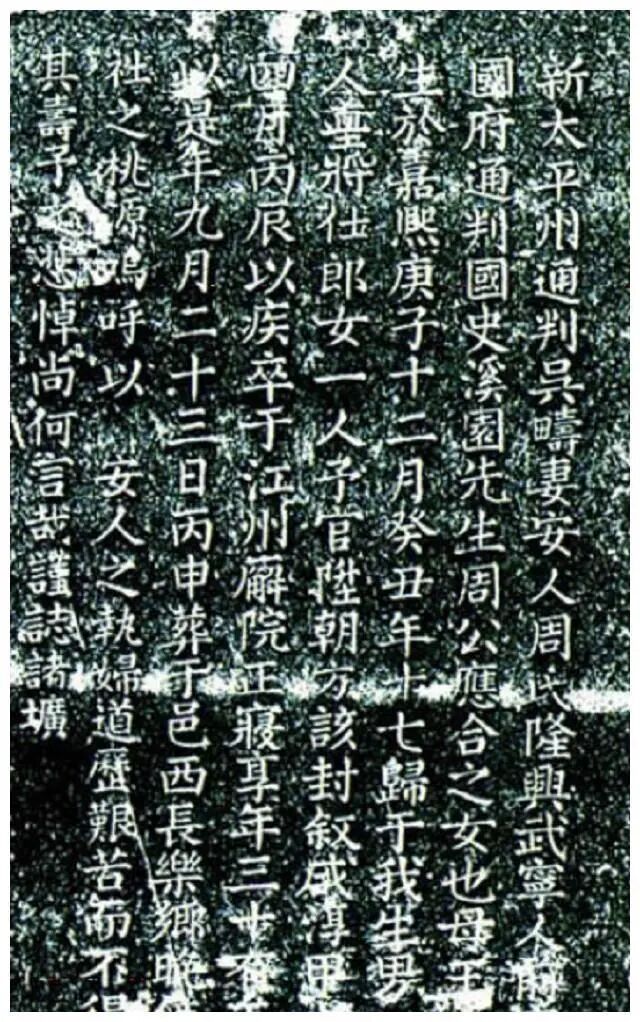 新太平州通判吳疇妻安人周氏隆興武寧人前
國府通判國史溪園先生周公應合之女也母王
生於嘉熙庚子十二月癸丑年十七歸于我生男
人 將仕郎女一人予官陞朝方該封叙咸淳甲
四月丙辰以疾卒于江州廨院正寢享年三十有
以是年九月二十三日丙申葬于邑西長樂鄉
社之桃源嗚呼以 安人之執婦道歷艱苦而不得
其壽予之悲悼尚何言哉謹誌諸壙